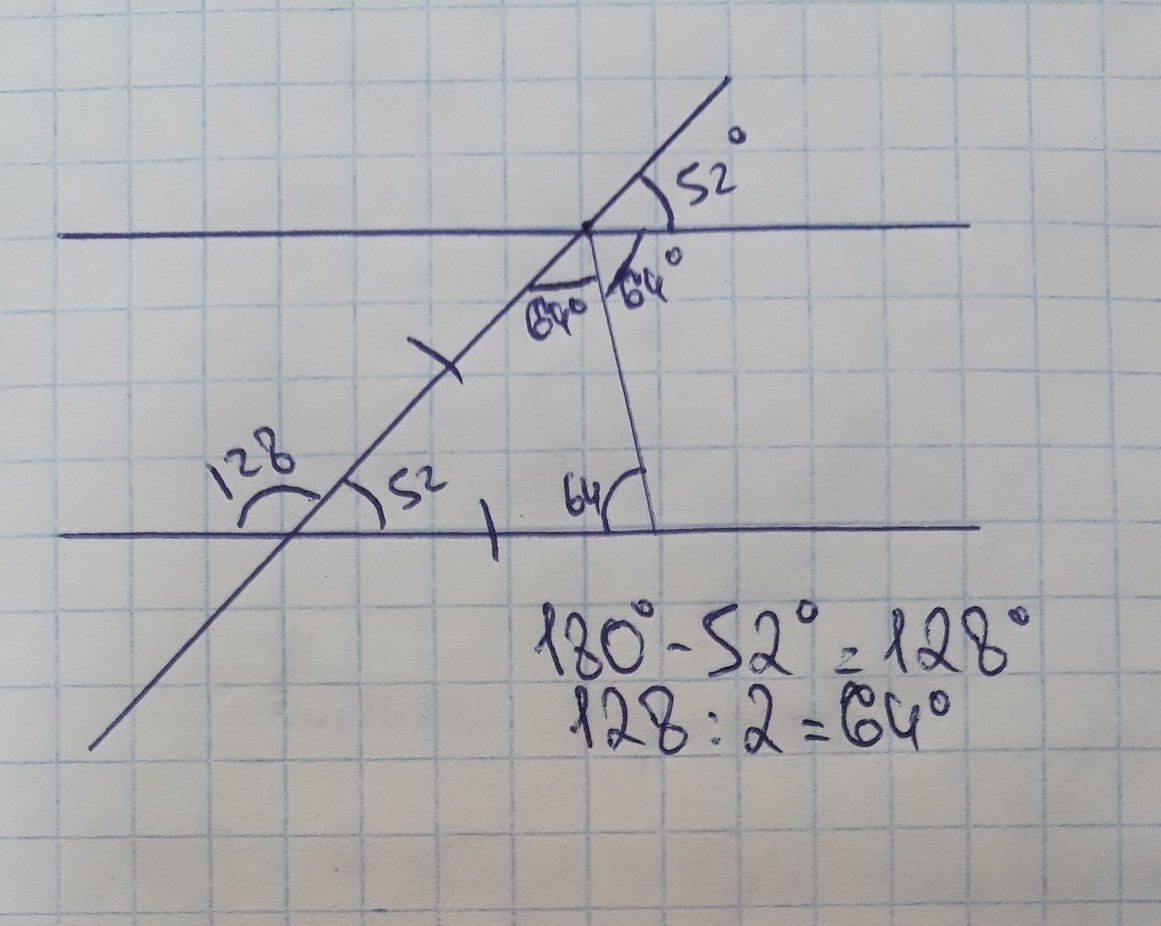 52°
64°
64°
128
52
64
180° - 52° = 128°
128 : 2 = 64°